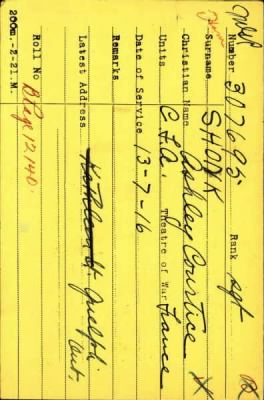 Number 307695 Rank Sgt
Surname SHONK
Christian Name Ashley Courtice
Units C.F.A. Theatre of War France
Date of Service 13-7-16
Remarks
Latest Address Kathleen St Guelph
Ont.
Roll No. B Page 12140.
200m.-2-21.M.